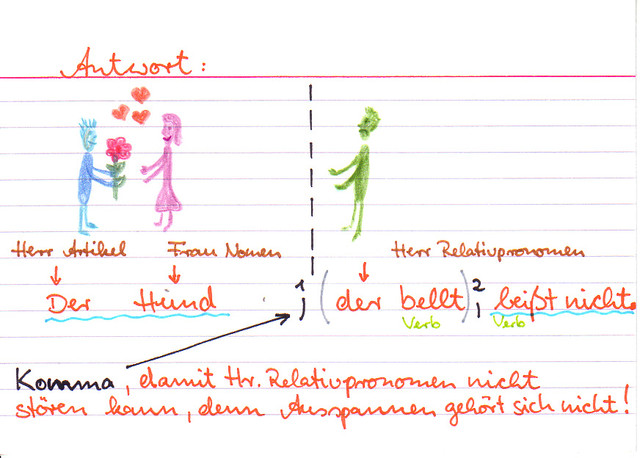 Antwort:
Herr Artikel Frau Nomen Herr Relativpronomen
1 2
Der Hund , (der bellt) , beißt nicht.
Verb Verb
Komma, damit Hr. Relativpronomen nicht
stören kann, denn Ausspannen gehört sich nicht!